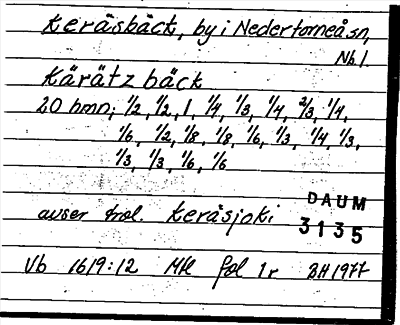 Keräsbäck, by i Nedertorneå sn,
Nb l.
Kärätz bäck
20 hmn; 1/2, 1/2, 1, 1/4, 1/3, 1/4, 2/3, 1/4,
1/6, 1/2, 1/8, 1/8, 1/6, 1/3, 1/4, 1/3,
1/3, 1/3, 1/6, 1/6
DAUM
avser trol. Keräsjoki
3135
Vb 1619:12 Mtl fol 1r BH 1977